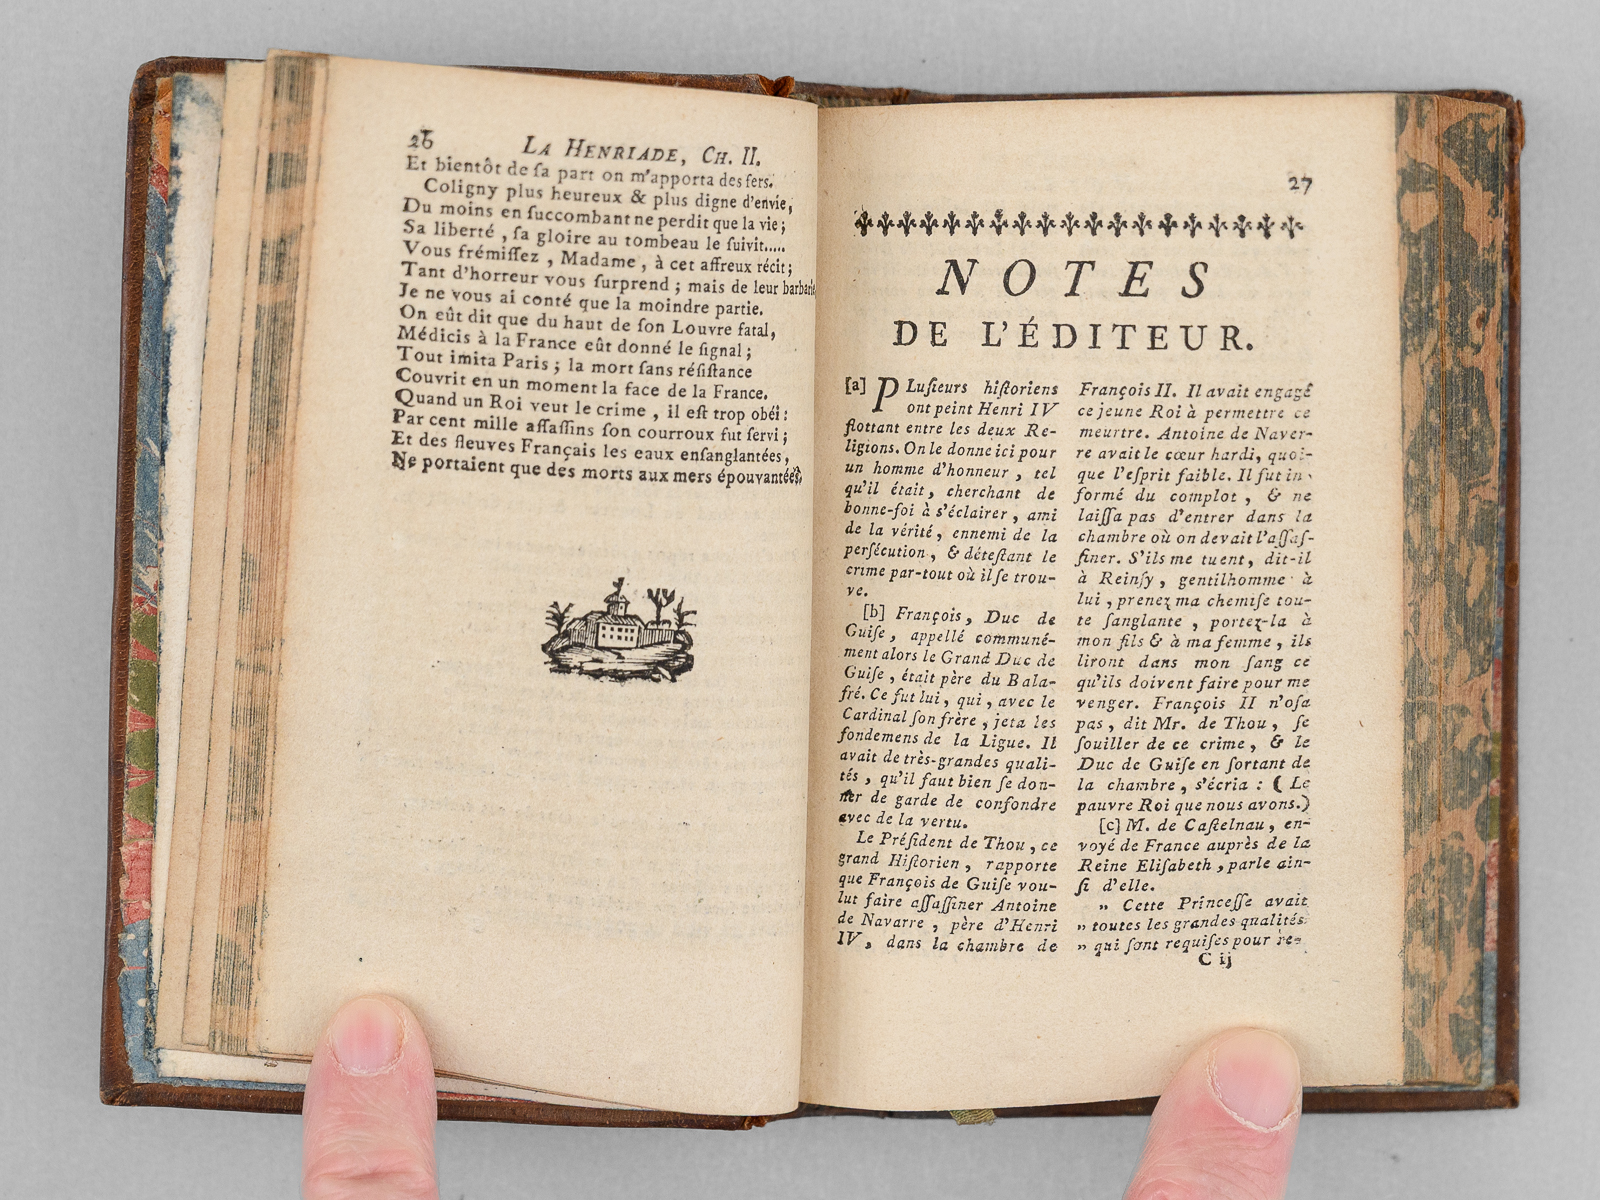 26 LA HENRIADE, CH. II.
Et bientôt de ſa part on m'apporta des fers.
Coligny plus heureux & plus digne d'envie,
Du moins en ſuccombant ne perdit que la vie;
Sa liberté, ſa gloire au tombeau le ſuivit.....
Vous frémiſſez, Madame, à cet affreux récit;
Tant d'horreur vous ſurprend; mais de leur barbarie
Je ne vous ai conté que la moindre partie.
On eût dit que du haut de ſon Louvre fatal,
Médicis à la France eût donné le ſignal;
Tout imita Paris; la mort ſans réſiſtance
Couvrit en un moment la face de la France.
Quand un Roi veut le crime, il eſt trop obéi:
Par cent mille aſſaſſins ſon courroux fut ſervi;
Et des fleuves Français les eaux enſanglantées,
Ne portaient que des morts aux mers épouvantées.
27
NOTES
DE L'ÉDITEUR.
[a] PLuſieurs hiſtoriens
ont peint Henri IV
flottant entre les deux Re-
ligions. On le donne ici pour
un homme d'honneur, tel
qu'il était, cherchant de
bonne-foi à s'éclairer, ami
de la vérité, ennemi de la
perſécution, & déteſtant le
crime par-tout où il ſe trou-
ve.
[b] François, Duc de
Guiſe, appellé communé-
ment alors le Grand Duc de
Guiſe, était père du Bala-
fré. Ce fut lui, qui, avec le
Cardinal ſon frère, jeta les
fondemens de la Ligue. Il
avait de très-grandes quali-
tés, qu'il faut bien ſe don-
ner de garde de confondre
avec de la vertu.
Le Préſident de Thou, ce
grand Hiſtorien, rapporte
que François de Guiſe vou-
lut faire aſſaſſiner Antoine
de Navarre, père d'Henri
IV, dans la chambre de
François II. Il avait engagé
ce jeune Roi à permettre ce
meurtre. Antoine de Naver-
re avait le cœur hardi, quoi-
que l'eſprit faible. Il fut in-
formé du complot, & ne
laiſſa pas d'entrer dans la
chambre où on devait l'aſſaſ-
ſiner. S'ils me tuent, dit-il
à Reinſy, gentilhomme à
lui, prenez ma chemiſe tou-
te ſanglante, portez-la à
mon fils & à ma femme, ils
liront dans mon ſang ce
qu'ils doivent faire pour me
venger. François II n'oſa
pas, dit Mr. de Thou, ſe
ſouiller de ce crime, & le
Duc de Guiſe en ſortant de
la chambre, s'écria: (Le
pauvre Roi que nous avons.)
[c] M. de Caſtelnau, en-
voyé de France auprès de la
Reine Eliſabeth, parle ain-
ſi d'elle.
„ Cette Princeſſe avait
„ toutes les grandes qualités
„ qui ſont requiſes pour re-
C ij